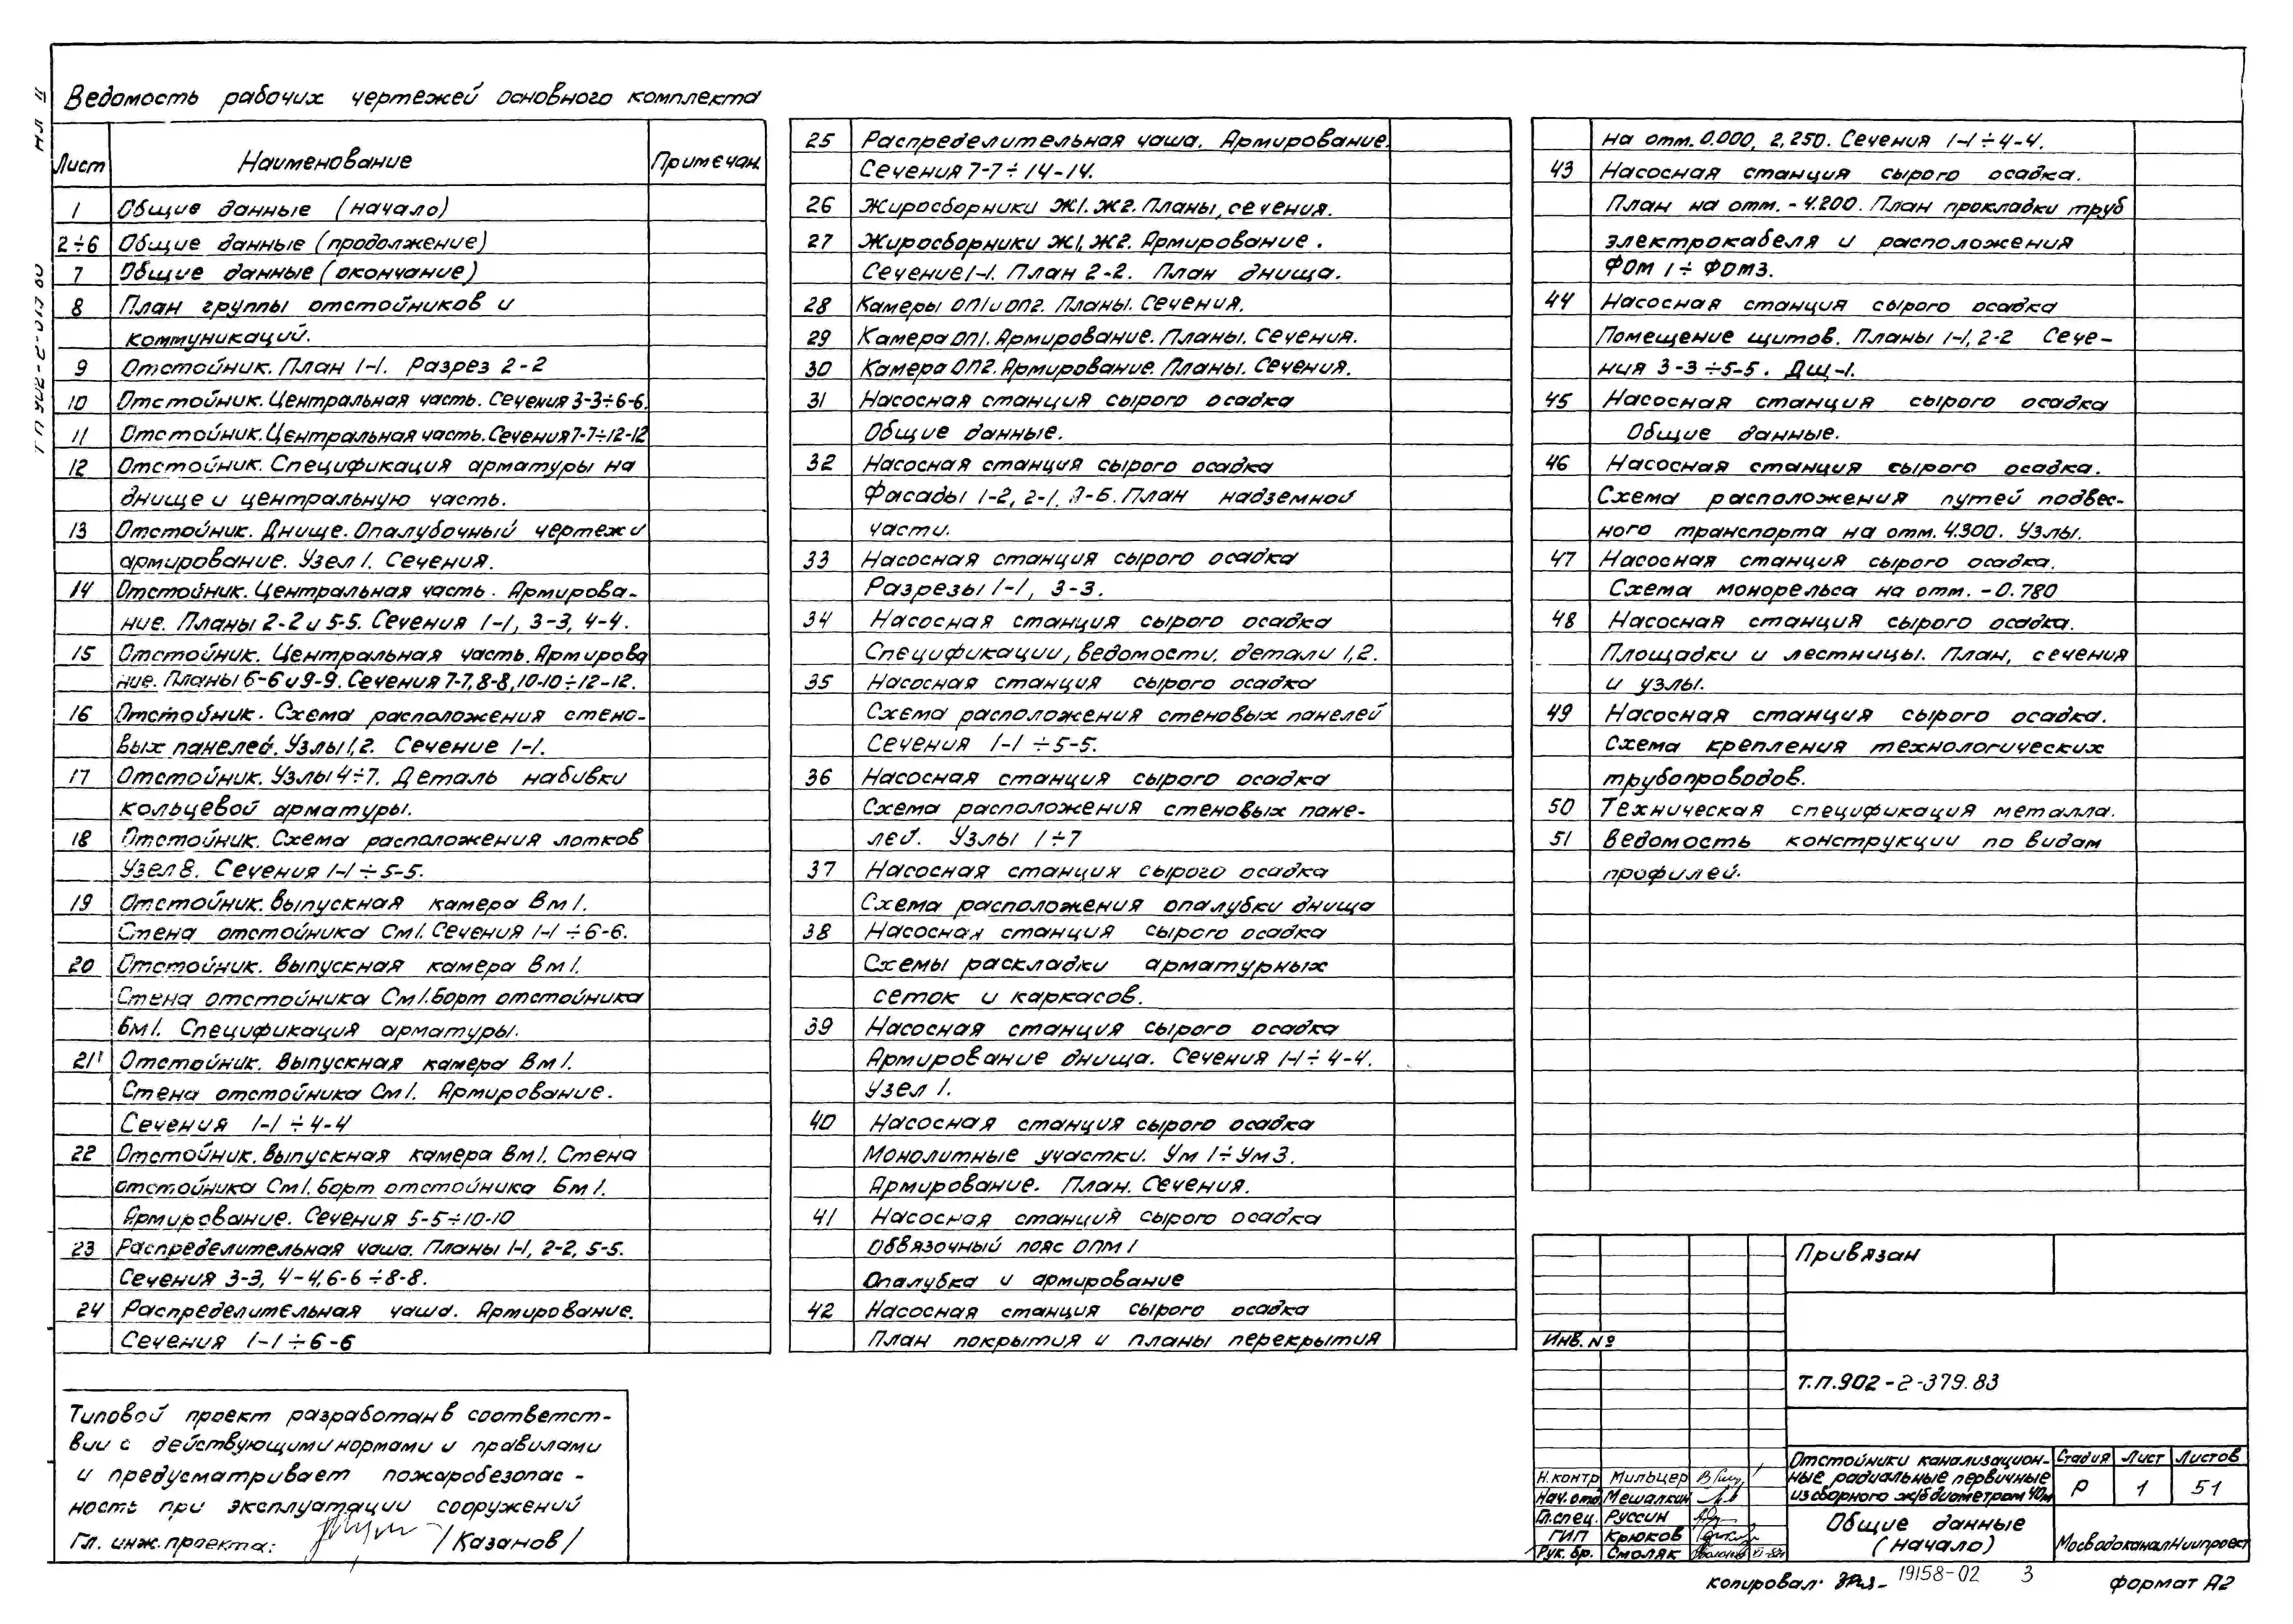 Ведомость рабочих чертежей основного комплекта
Лист Наименование Примечан.
1 Общие данные (начало)
2÷6 Общие данные (продолжение)
7 Общие данные (окончание)
8 План группы отстойников и
коммуникаций.
9 Отстойник. План 1-1. Разрез 2-2
10 Отстойник. Центральная часть. Сечения 3-3÷6-6.
11 Отстойник. Центральная часть. Сечения 7-7÷12-12
12 Отстойник. Спецификация арматуры на
днище и центральную часть.
13 Отстойник. Днище. Опалубочный чертеж и
армирование. Узел 1. Сечения.
14 Отстойник. Центральная часть. Армирова-
ние. Планы 2-2 и 5-5. Сечения 1-1, 3-3, 4-4.
15 Отстойник. Центральная часть. Армирова
ние. Планы 6-6 и 9-9. Сечения 7-7, 8-8, 10-10÷12-12.
16 Отстойник. Схема расположения стено-
вых панелей. Узлы 1,2. Сечение 1-1.
17 Отстойник. Узлы 4÷7. Деталь набивки
кольцевой арматуры.
18 Отстойник. Схема расположения лотков
Узел 8. Сечения 1-1÷5-5.
19 Отстойник. Выпускная камера Вм1.
Стена отстойника См1. Сечения 1-1÷6-6.
20 Отстойник. Выпускная камера Вм1.
Стена отстойника См1. Борт отстойника
Бм1. Спецификация арматуры.
21 Отстойник. Выпускная камера Вм1.
Стена отстойника См1. Армирование.
Сечения 1-1÷4-4
22 Отстойник. Выпускная камера Вм1. Стена
отстойника См1. Борт отстойника Бм1.
Армирование. Сечения 5-5÷10-10
23 Распределительная чаша. Планы 1-1, 2-2, 5-5.
Сечения 3-3, 4-4, 6-6÷8-8.
24 Распределительная чаша. Армирование.
Сечения 1-1÷6-6
25 Распределительная чаша. Армирование.
Сечения 7-7÷14-14.
26 Жиросборники Ж1. Ж2. Планы, сечения.
27 Жиросборники Ж1, Ж2. Армирование.
Сечение 1-1. План 2-2. План днища.
28 Камеры ОП1 и ОП2. Планы. Сечения.
29 Камера ОП1. Армирование. Планы. Сечения.
30 Камера ОП2. Армирование. Планы. Сечения.
31 Насосная станция сырого осадка
Общие данные.
32 Насосная станция сырого осадка
Фасады 1-2, 2-1, А-Б. План надземной
части.
33 Насосная станция сырого осадка
Разрезы 1-1, 3-3.
34 Насосная станция сырого осадка
Спецификации, ведомости, детали 1,2.
35 Насосная станция сырого осадка
Схема расположения стеновых панелей
Сечения 1-1÷5-5.
36 Насосная станция сырого осадка
Схема расположения стеновых пане-
лей. Узлы 1÷7
37 Насосная станция сырого осадка
Схема расположения опалубки днища
38 Насосная станция сырого осадка
Схемы раскладки арматурных
сеток и каркасов.
39 Насосная станция сырого осадка
Армирование днища. Сечения 1-1÷4-4.
Узел 1.
40 Насосная станция сырого осадка
Монолитные участки. Ум 1÷Ум3.
Армирование. План. Сечения.
41 Насосная станция сырого осадка
Обвязочный пояс ОПМ1
Опалубка и армирование
42 Насосная станция сырого осадка
План покрытия и планы перекрытия
на отм. 0.000, 2.250. Сечения 1-1÷4-4.
43 Насосная станция сырого осадка.
План на отм. -4.200. План прокладки труб
электрокабеля и расположения
ФОМ 1÷ФОМ3.
44 Насосная станция сырого осадка
Помещение щитов. Планы 1-1, 2-2 Сече-
ния 3-3÷5-5. Дщ-1.
45 Насосная станция сырого осадка
Общие данные.
46 Насосная станция сырого осадка.
Схема расположения путей подвес-
ного транспорта на отм. 4.300. Узлы.
47 Насосная станция сырого осадка.
Схема монорельса на отм. -0.780
48 Насосная станция сырого осадка.
Площадки и лестницы. План, сечения
и узлы.
49 Насосная станция сырого осадка.
Схема крепления технологических
трубопроводов.
50 Техническая спецификация металла.
51 Ведомость конструкции по видам
профилей.
Типовой проект разработан в соответст-
вии с действующими нормами и правилами
и предусматривает пожаробезопас-
ность при эксплуатации сооружений
Гл. инж. проекта: /Казанов/
Привязан
Инв. №
Т.П.902-2-379.83
Отстойники канализацион-
ные радиальные первичные
из сборного ж/б диаметром 40м
Стадия Лист Листов
Р 1 51
Н.контр Мильцер
Нач.отд Мешалкин
Гл.спец. Руссин
ГИП Крюков
Рук. бр. Смоляк
Общие данные
(начало)
МосводоканалНиипроект
копировал: 19158-02 3 формат А2